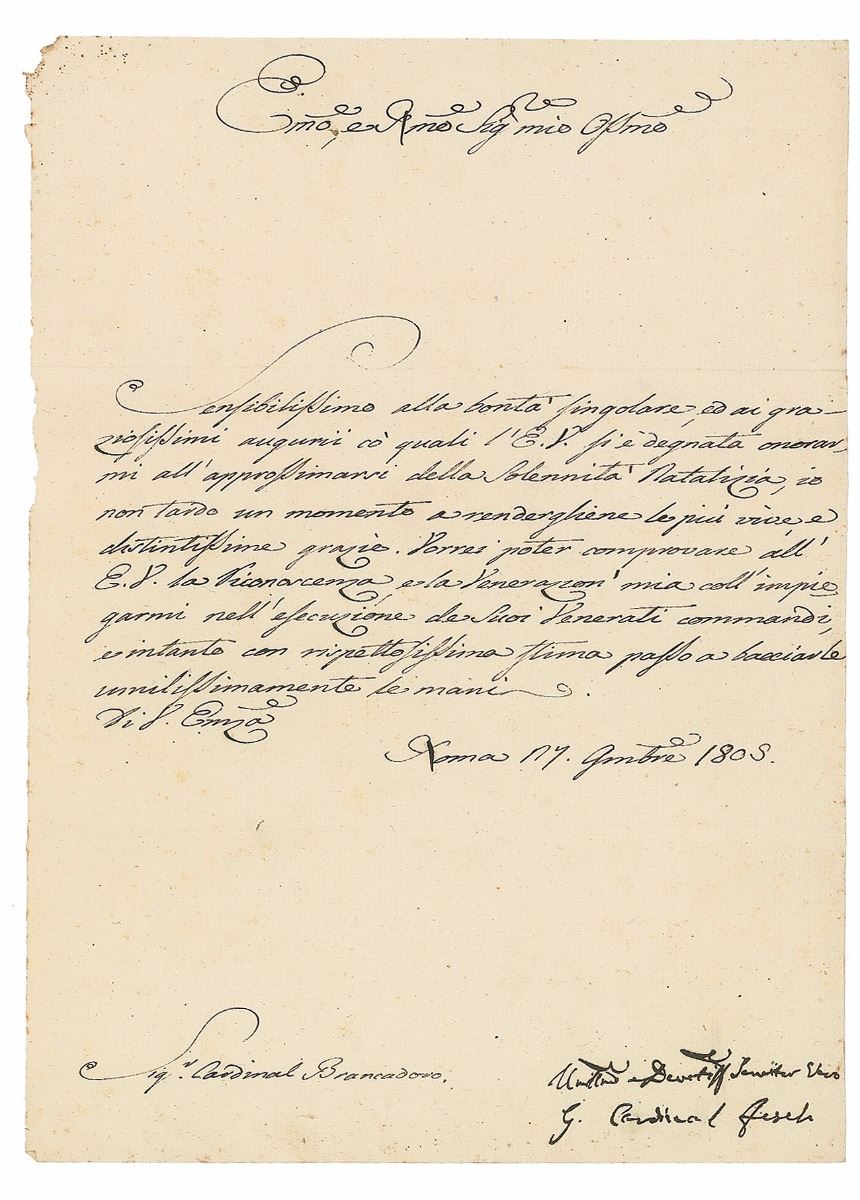 Emo, e Rmo Sig mio Ossmo
Sensibilissimo alla bontà singolare, ed ai gra-
ziosissimi augurii cò quali l'E. V. si è degnata onorar,
mi all'approssimarsi della Solennità Natalizia, io
non tardo un momento a rendergliene le più vive, e
distintissime grazie. Vorrei poter comprovare all'
E. V. la Riconoscenza, e la Venerazion' mia coll'impie
garmi nell'esecuzione de Suoi Venerati commandi,
e intanto con rispettosissima stima passo a bacciarle
umilissimamente le mani.
Di V. Emza
Roma 17. Gmbre 1805.
Sigr. Cardinal Brancadoro.
Devotiss Servitor Vero
G. Cardinal Fesch